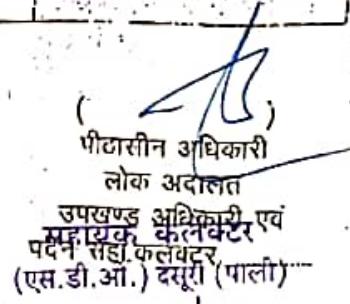 ( )
पीठासीन अधिकारी
लोक अदालत
उपखण्ड अधिकारी एवं
सहायक कलेक्टर
पदेन सहा.कलेक्टर,
(एस.डी.ओ.) देसूरी (पाली)